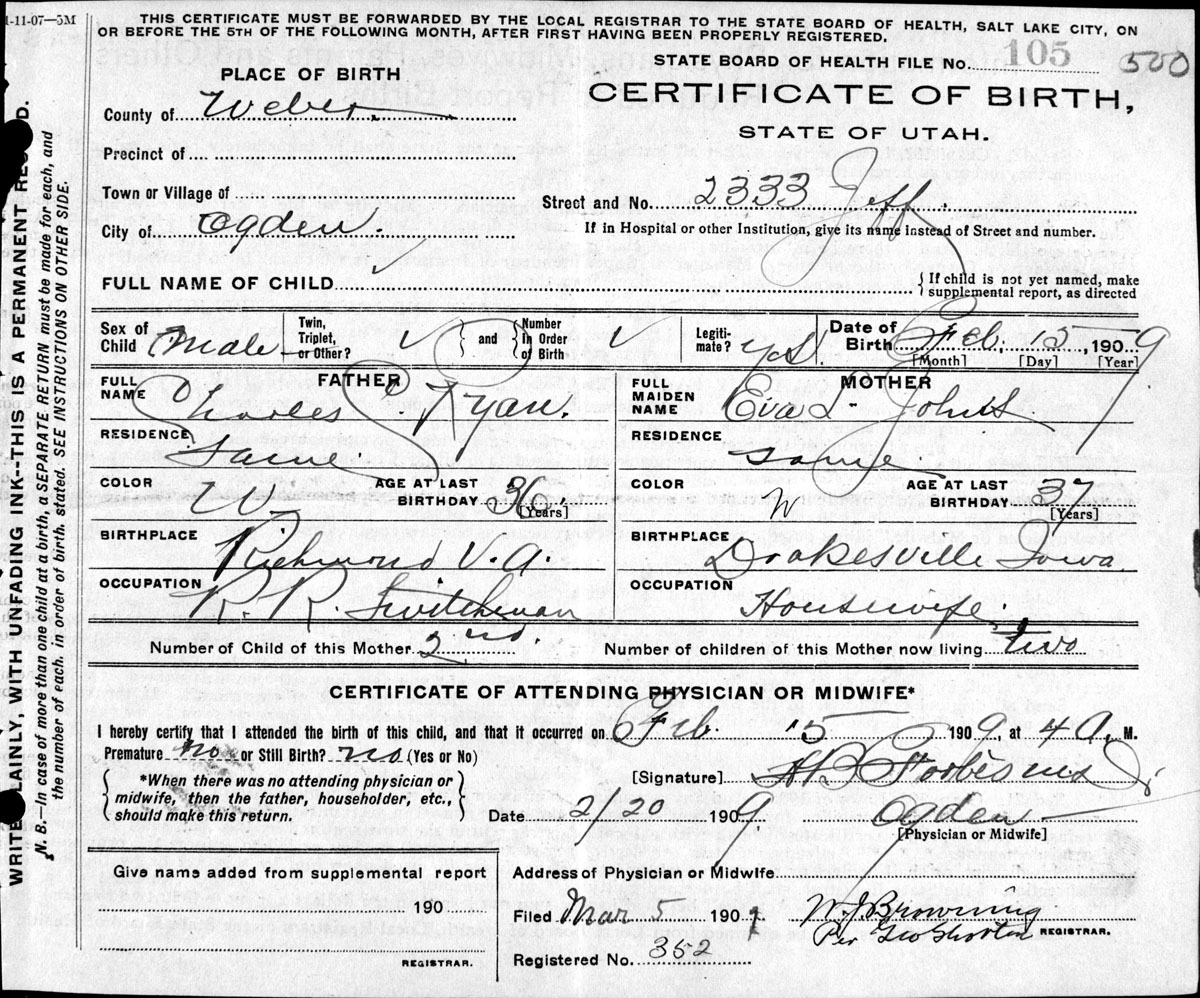 1-11-07—5M
THIS CERTIFICATE MUST BE FORWARDED BY THE LOCAL REGISTRAR TO THE STATE BOARD OF HEALTH, SALT LAKE CITY, ON
OR BEFORE THE 5TH OF THE FOLLOWING MONTH, AFTER FIRST HAVING BEEN PROPERLY REGISTERED.
STATE BOARD OF HEALTH FILE No. 105 500
PLACE OF BIRTH
CERTIFICATE OF BIRTH,
STATE OF UTAH.
County of Weber
Precinct of
Town or Village of
Street and No. 2333 Jeff.
City of Ogden.
If in Hospital or other Institution, give its name instead of Street and number.
FULL NAME OF CHILD
{ If child is not yet named, make
supplemental report, as directed
Sex of Child Male
Twin, Triplet, or Other? ✓ { and } Number In Order of Birth ✓
Legiti-mate? yes!
Date of Birth Feb. 15, 1909
[Month] [Day] [Year]
FATHER
FULL NAME Charles C. Ryan.
RESIDENCE Same.
COLOR W AGE AT LAST BIRTHDAY 36 [Years]
BIRTHPLACE Richmond V.A.
OCCUPATION R. R. Switchman
MOTHER
FULL MAIDEN NAME Eva L. Johns
RESIDENCE Same.
COLOR W AGE AT LAST BIRTHDAY 37 [Years]
BIRTHPLACE Drakesville Iowa.
OCCUPATION Housewife.
Number of Child of this Mother 2nd. Number of children of this Mother now living two
CERTIFICATE OF ATTENDING PHYSICIAN OR MIDWIFE*
I hereby certify that I attended the birth of this child, and that it occurred on Feb. 15 1909, at 4 A. M.
Premature no or Still Birth? no (Yes or No)
{ *When there was no attending physician or
midwife, then the father, householder, etc.,
should make this return. }
[Signature] HB Forbes MD
Date 2/20 1909, Ogden
[Physician or Midwife]
Give name added from supplemental report
190
REGISTRAR.
Address of Physician or Midwife
Filed Mar 5 1909 W. J. Browning
Per Geo Shorten REGISTRAR.
Registered No. 352
WRITE PLAINLY, WITH UNFADING INK--THIS IS A PERMANENT RECORD.
N. B.—In case of more than one child at a birth, a SEPARATE RETURN must be made for each, and
the number of each. in order of birth. stated. SEE INSTRUCTIONS ON OTHER SIDE.